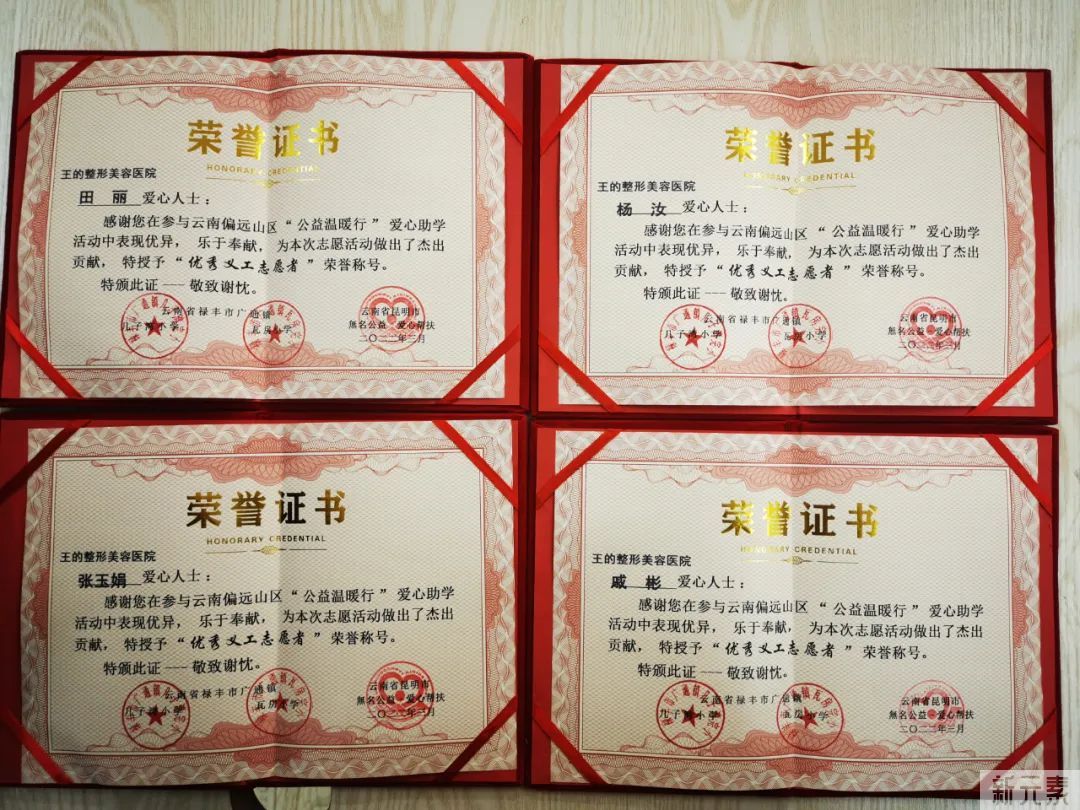 荣誉证书
HONORARY CREDENTIAL
王的整形美容医院
田 丽 爱心人士：
感谢您在参与云南偏远山区“公益温暖行”爱心助学
活动中表现优异，乐于奉献，为本次志愿活动做出了杰出
贡献，特授予“优秀义工志愿者”荣誉称号。
特颁此证---敬致谢忱。
云南省禄丰市广通镇
小学 瓦房小学
云南省昆明市
無名公益·爱心帮扶
二〇二二年三月
荣誉证书
HONORARY CREDENTIAL
王的整形美容医院
杨 汝 爱心人士：
感谢您在参与云南偏远山区“公益温暖行”爱心助学
活动中表现优异，乐于奉献，为本次志愿活动做出了杰出
贡献，特授予“优秀义工志愿者”荣誉称号。
特颁此证---敬致谢忱。
云南省禄丰市广通镇
小学 瓦房小学
云南省昆明市
無名公益·爱心帮扶
二〇二二年三月
荣誉证书
HONORARY CREDENTIAL
王的整形美容医院
张玉娟 爱心人士：
感谢您在参与云南偏远山区“公益温暖行”爱心助学
活动中表现优异，乐于奉献，为本次志愿活动做出了杰出
贡献，特授予“优秀义工志愿者”荣誉称号。
特颁此证---敬致谢忱。
云南省禄丰市广通镇
小学 瓦房小学
云南省昆明市
無名公益·爱心帮扶
二〇二二年三月
荣誉证书
HONORARY CREDENTIAL
王的整形美容医院
戚 彬 爱心人士：
感谢您在参与云南偏远山区“公益温暖行”爱心助学
活动中表现优异，乐于奉献，为本次志愿活动做出了杰出
贡献，特授予“优秀义工志愿者”荣誉称号。
特颁此证---敬致谢忱。
云南省禄丰市广通镇
小学 瓦房小学
云南省昆明市
無名公益·爱心帮扶
二〇二二年三月
新元素